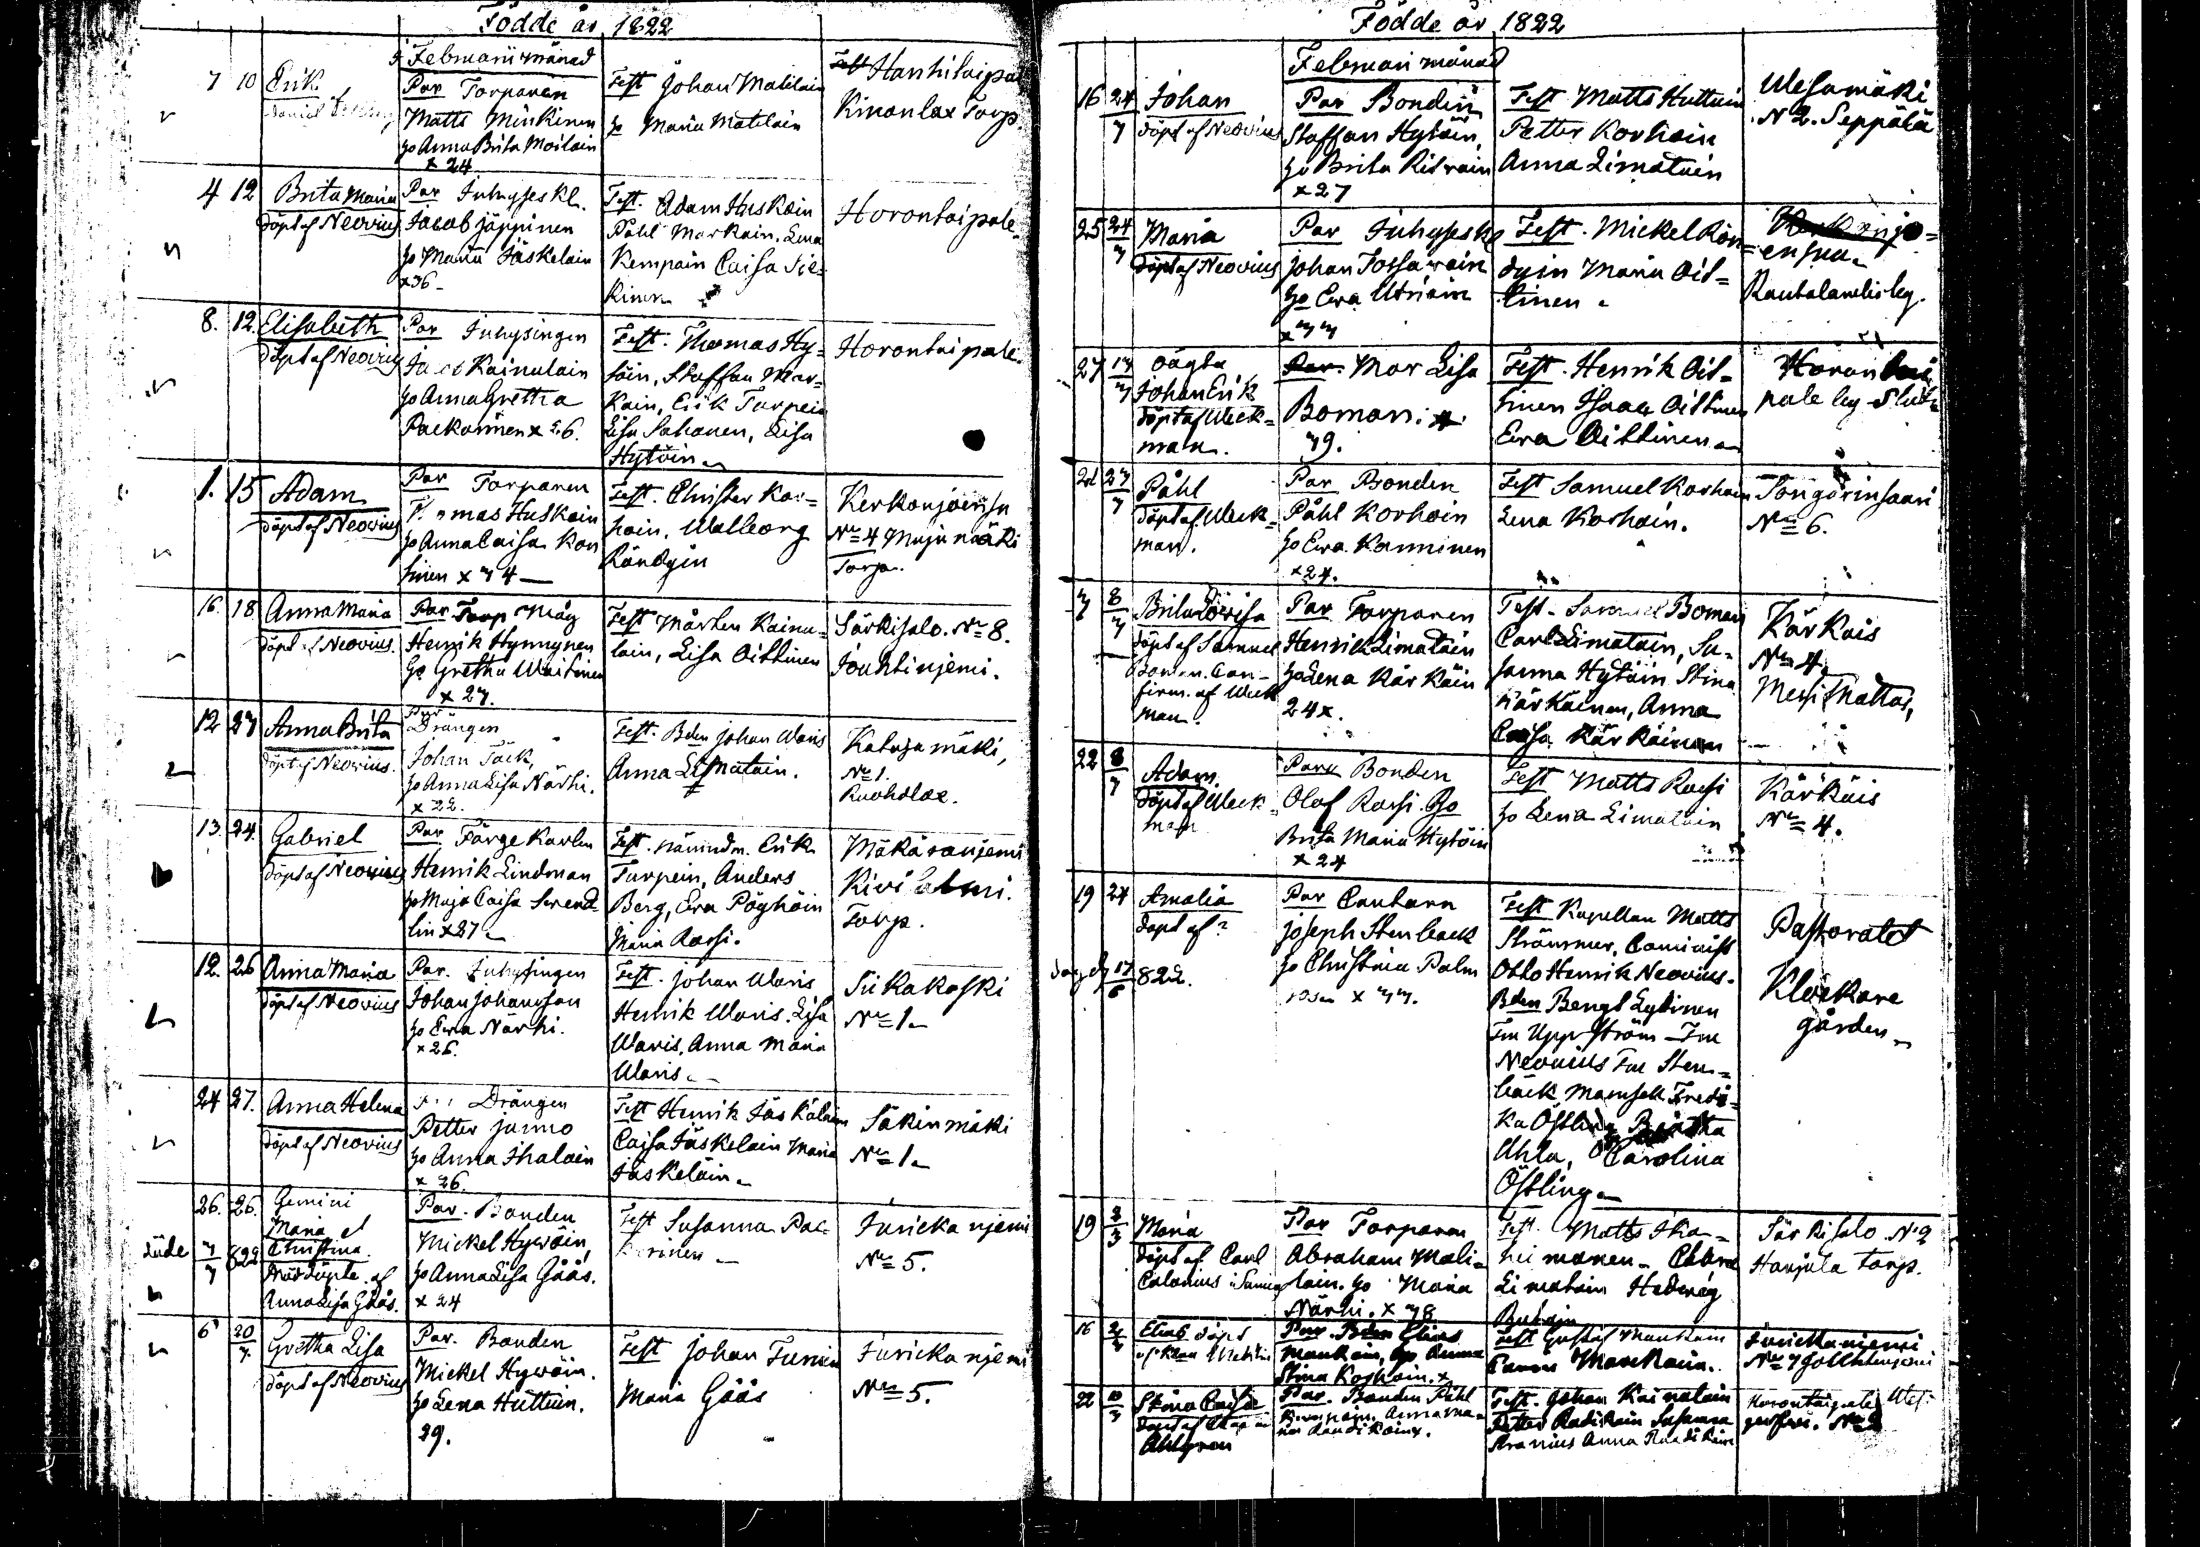 Födde år 1822
Februarii månad
7 10 Erik
Par Torparen
Matts Minkinen
ho Anna Brita Moilain
x 24
Test Johan Matilain
ho Maria Matilain
Hanhitaipal
Kinonlax Torp.
4 12 Brita Maria
döpt af Neovius
Par Inhyseskl.
Jacob Jäppinen
ho Maria Jäskelain
x36
Test. Adam Huskain
Påhl Markain. Lena
Kempain Caisa Sie-
kinen
Horontaipale.
8. 12. Elisabeth
döpt af Neovius
Par Inhysingen
Kainulain
ho Anna Gretha
Packarinen x 26.
Test. Thomas Hy-
töin, Staffan Mar-
kain, Erik Turpein
Lisa Sahanen, Lisa
Hytöin
Horontaipale.
1. 15 Adam
döpt af Neovius
Par Torparen
Huskain
ho Anna Caisa Kon
tinen x 74
Test. Christer Kor-
hoin, Walborg
Röndyin
Kerkonjoensu
No 4 Majamäki
Torp.
16. 18 Anna Maria
döpt af Neovius.
Par. Torp Måg
Henrik Hynnynen
ho Gretha Waitinen
x 27.
Test Mårten Kainu-
lain, Lisa Oittinen
Särkisalo. No 8.
Jouhtinjemi.
12 27 Anna Brita
döpt af Neovius.
Par
Drängen
Johan Täck,
ho Anna Lisa Närhi.
x 22.
Test. Bden Johan Waris
Anna Limatain.
Katajamäki,
No 1.
Ruoholax.
13. 24. Gabriel
döpt af Neovius
Par. Färgekarlen
Henrik Lindman
ho Maja Caisa Swend-
lin x27
Test. nämndm. Erik
Turpein, Anders
Berg, Eva Pöyhöin
Maria Rossi.
Mäkäranjemi
Kivisalmi.
Torp.
12. 26 Anna Maria
döpt af Neovius
Par. Inhysingen
Johan Johansson
ho Ewa Närhi.
x 26.
Test. Johan Waris
Henrik Waris. Lisa
Waris, Anna Maria
Waris.
Siikakoski
No 1.
24 27. Anna Helena
döpt af Neovius
Drängen
Petter Junno
ho Anna Ihalain
x 26.
Test Henrik Jäskälain
Caisa Jäskelain Maria
Jäskeläin.
Säkinmäki
No 1.
26. 26. Gemini
Maria et
Christina.
Nöddöpte af
Anna Lisa Gåås.
7/7 822
Par. Bonden
Mickel Hywöin
ho Anna Lisa Gåås.
x 24
Test Susanna Pac-
karinen
Juricka njemi
No 5.
6 20/7. Gretha Lisa
döpt af Neovius
Par. Bonden
Mickel Hywöin.
ho Lena Huttuin.
29.
Test Johan Turuin
Maria Gåås
Juricka njemi
No 5.
Födde år 1822
Februari månad
16 24/7 Johan
döpt af Neovius
Par Bonden
Staffan Hytöin,
ho Brita Ritvain
x 27
Test Matts Huttuin
Petter Korhoin
Anna Limatain
Wesamäki
No 2. Seppälä
25 24/7 Maria
döpt af Neovius
Par Inhyseskl
Johan Tossavain
ho Ewa Utriain
x 77
Test. Mickel Rön-
dyin Maria Oit-
tinen
ensuu
Rautalambi ley.
27 17/7 oägta
Johan Erik
döpt af Week-
man.
Par. Mor Lisa
Boman.
79.
Test. Henrik Oit-
tinen Isaac Oittinen
Ewa Oittinen
Horontai
pale
21 27/7 Påhl
döpt af Week-
man.
Par Bonden
Påhl Korhoin
ho Ewa Kanninen
x 24.
Test Samuel Korhoin
Lena Korhoin.
Tongorinsaari
No 6.
7 8/7 Brita Lovisa
döpt af Samuel
Boman. Con-
firm. af Week
man.
Par Torparen
Henrik Limatain
ho Lena Kärkäin
24x.
Test. Samuel Boman
Carl Limatain, Su-
sanna Hytöin Stina
Kärkäinen, Anna
Caisa Kärkäinen
Kärkäis
No 4.
22 8/7 Adam
döpt af Week
man
Par Bonden
Olof Rossi ho
Brita Maria Hytöin
x 24
Test Matts Rossi
ho Lena Limatain
Kärkäis
No 4.
19 24 Amalia
döpt af?
17/6 822.
Par Cantorn
Joseph Stenbeck
ho Christina Palm
x 77.
Test Kapellan Matts
Strömmer, Cominist
Otto Henrik Neovius.
Bden Bengt Lytinen
Fru Uppström Fru
Neovius Fru Sten-
bäck Mamsell Fredri-
ka Östling
Uhla, Carolina
Östling
Pastoratet
Klockare
gården
19 3/3 Maria
döpt af Carl
Par Torparen
Abraham Mali-
lain. ho Maria
Närhi. x 78
Test. Matts
Limatain Hedwig
Särkisalo No 2
Harjula torp.
16 Elias döpt
Par. Bden Elias
Mankain, ho Anna
Stina Korhoin. x
Test Gustaf Mankain
Manckain.
Jurickaniemi
No 7
22 Stina Caisa
döpt af
Ahlgren
Par. Bonden Påhl
Test. Johan Kainulain
Petter Radikain Susanna
Anna Raudikain
Horontaipale
No 2